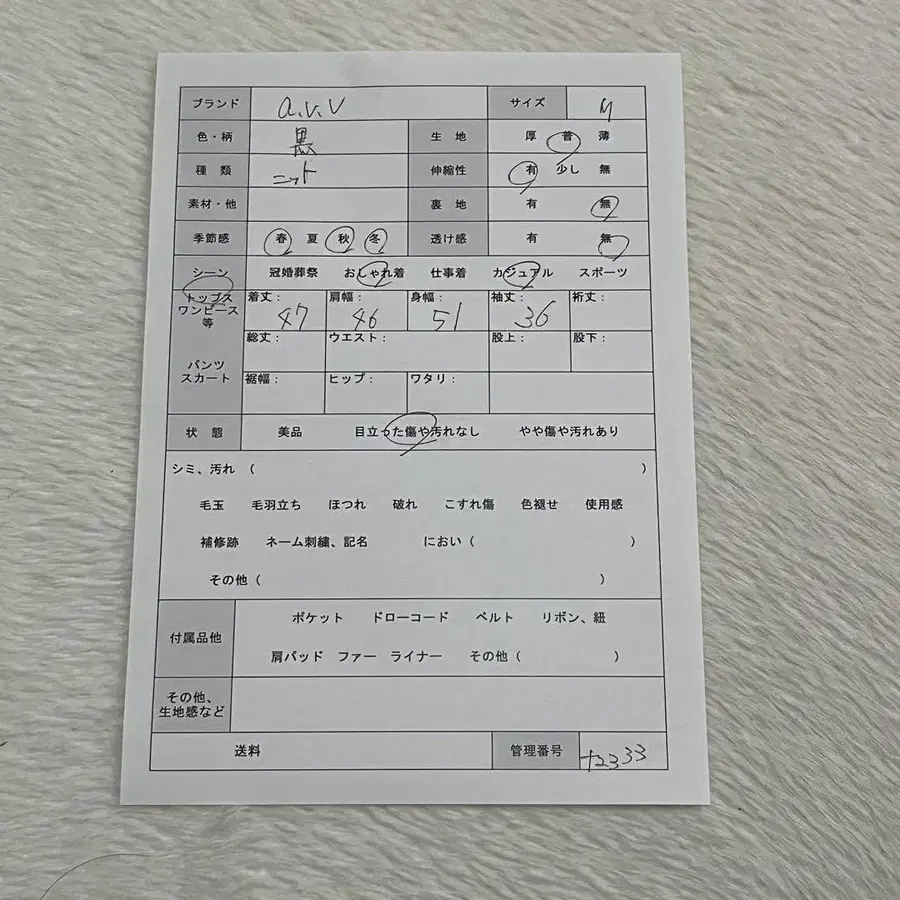 ブランド a.v.v サイズ M
色・柄 黒 生地 厚 普 薄
種類 ニット 伸縮性 有 少し 無
素材・他 裏地 有 無
季節感 春 夏 秋 冬 透け感 有 無
シーン 冠婚葬祭 おしゃれ着 仕事着 カジュアル スポーツ
トップス ワンピース 等 着丈: 47 肩幅: 46 身幅: 51 袖丈: 36 裄丈:
総丈: ウエスト: 股上: 股下:
パンツ スカート 裾幅: ヒップ: ワタリ:
状態 美品 目立った傷や汚れなし やや傷や汚れあり
シミ、汚れ ( )
毛玉 毛羽立ち ほつれ 破れ こすれ傷 色褪せ 使用感
補修跡 ネーム刺繍、記名 におい ( )
その他 ( )
付属品他 ポケット ドローコード ベルト リボン、紐
肩パッド ファー ライナー その他 ( )
その他、
生地感など
送料 管理番号 +2333